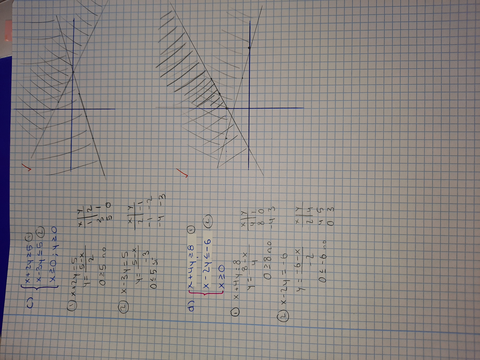 c) { x+2y≥5 ①
x-3y≤5 ②
x≥0; y≥0
① x+2y=5
y=5-x/2
0≥5 no
x y
1 2
3 1
5 0
② x-3y=5
y=5-x/-3
0≤5 sí
x y
2 -1
-1 -2
-4 -3
d) { x+4y≥8 ①
x-2y≤-6 ②
x≥0
① x+4y=8
y=8-x/4
0≥8 no
x y
4 1
8 0
-4 3
② x-2y=-6
y=-6-x/-2
0≤-6 no
x y
2 4
4 5
0 3